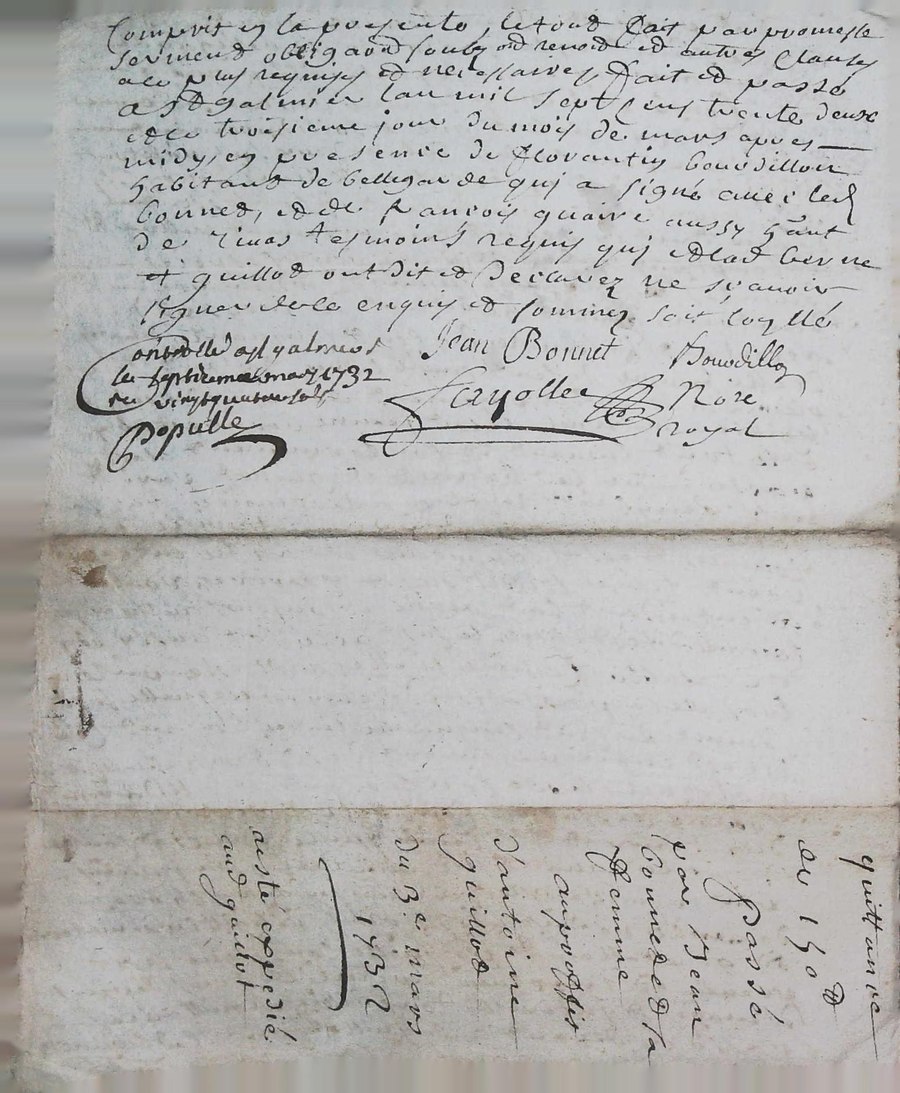 Comprit en la presente, le tout fait par promesse
serment obligaon soubon renon et autres clauses
a ce plus requises et necessaires fait et passé
a St galmier lan mil sept cens trente deux
et le troisieme jour du mois de mars apres
midy, en presence de florantin bourdillon
habitant de bellegarde qui a signé avec led
bonnet, et de francois quaire aussy hant
de rivas tesmoins requis qui et lad berne
et guillot ont dit et declarez ne scavoir
signer de ce enquis et sominez soit scellé
Jean Bonnet Bourdillon
Controllé a st galmier
le septieme mars 1732
vingt quatre sols
Populle
Feryollee Nore
royal
quittance
de 150 tt
passé
par Jean
bonnet et sa
femme
au proffis
d'antoine
guillot
du 3e mars
1732
a esté expedié
aud guillot